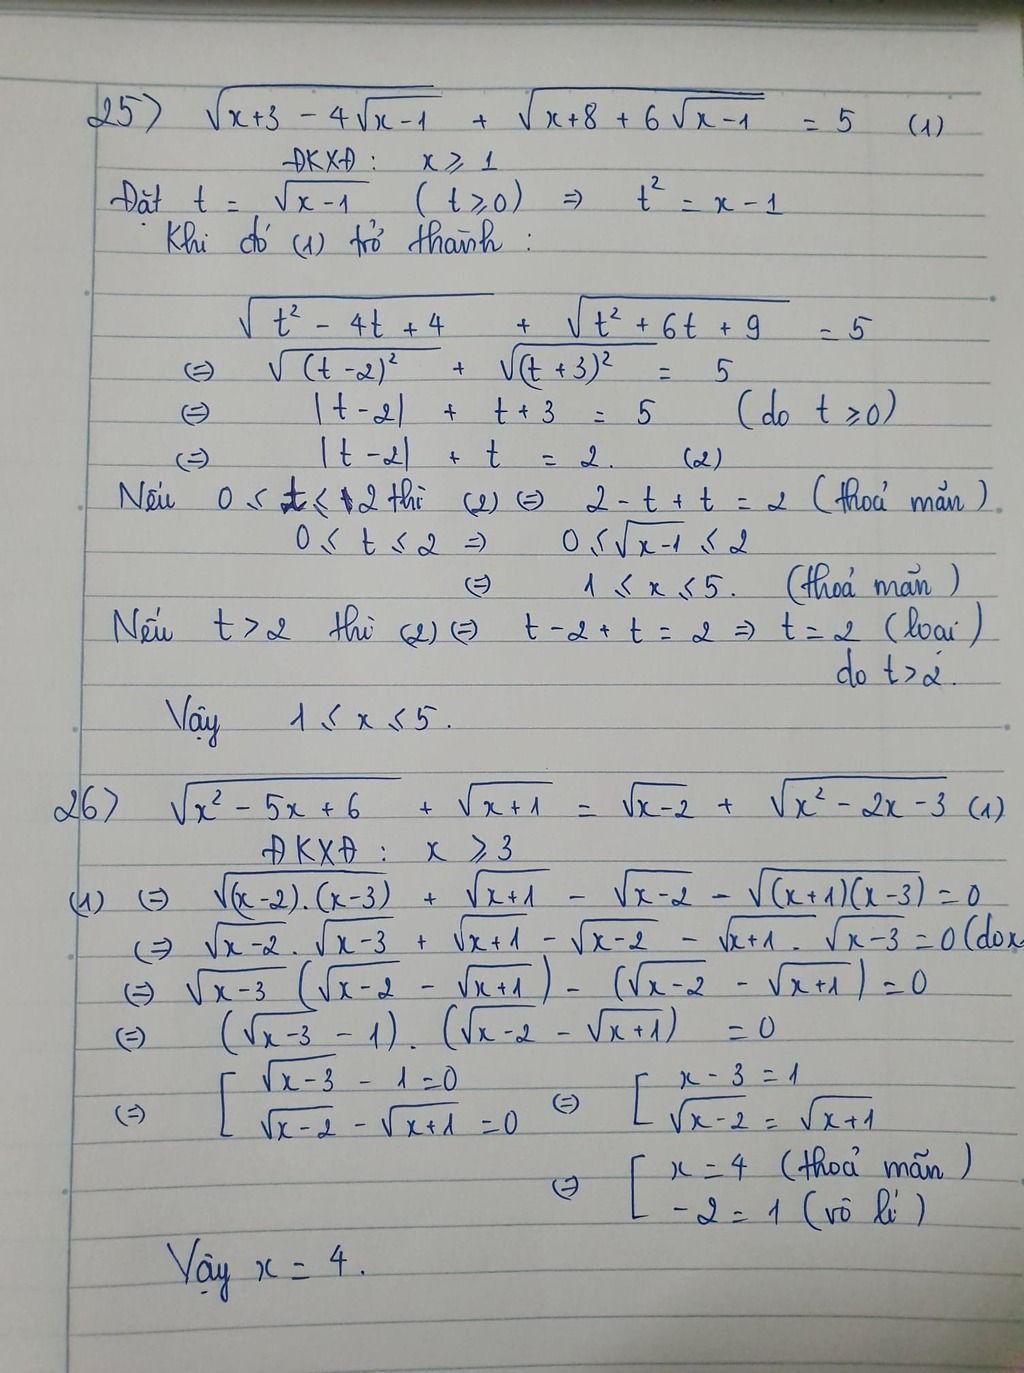 25) √(x+3 - 4√(x-1)) + √(x+8 + 6√(x-1)) = 5 (1)
ĐKXĐ: x ⩾ 1
Đặt t = √(x-1) (t ⩾ 0) ⇒ t² = x - 1
Khi đó (1) trở thành:
√(t² - 4t + 4) + √(t² + 6t + 9) = 5
⇔ √((t-2)²) + √((t+3)²) = 5
⇔ |t-2| + t+3 = 5 (do t ⩾ 0)
⇔ |t-2| + t = 2. (2)
Nếu 0 ⩽ t ⩽ 2 thì (2) ⇔ 2-t+t = 2 (thoả mãn).
0 ⩽ t ⩽ 2 ⇒ 0 ⩽ √(x-1) ⩽ 2
⇔ 1 ⩽ x ⩽ 5. (thoả mãn)
Nếu t > 2 thì (2) ⇔ t-2+t = 2 ⇒ t = 2 (loại)
do t > 2.
Vậy 1 ⩽ x ⩽ 5.
26) √(x² - 5x + 6) + √(x+1) = √(x-2) + √(x² - 2x - 3) (1)
ĐKXĐ: x ⩾ 3
(1) ⇔ √((x-2).(x-3)) + √(x+1) - √(x-2) - √((x+1)(x-3)) = 0
⇔ √(x-2). √(x-3) + √(x+1) - √(x-2) - √(x+1). √(x-3) = 0 (do x
⇔ √(x-3) (√(x-2) - √(x+1)) - (√(x-2) - √(x+1)) = 0
⇔ (√(x-3) - 1). (√(x-2) - √(x+1)) = 0
⇔ [ √(x-3) - 1 = 0 ⇔ [ x - 3 = 1
√(x-2) - √(x+1) = 0 √(x-2) = √(x+1)
⇔ [ x = 4 (thoả mãn)
-2 = 1 (vô lí)
Vậy x = 4.